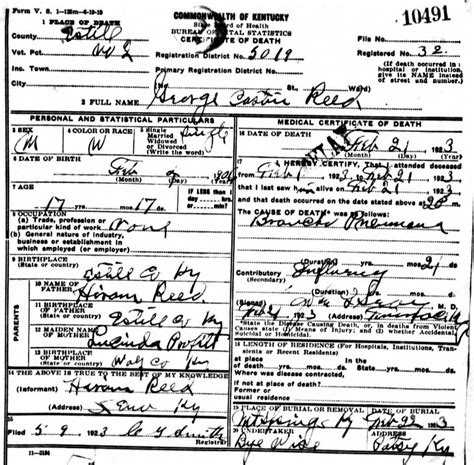 Form V. S. 1-125m-6-19-19
1 PLACE OF DEATH
County Estill
Vot. Pct. No 2
Inc. Town
City
COMMONWEALTH OF KENTUCKY
State Board of Health
BUREAU OF VITAL STATISTICS
CERTIFICATE OF DEATH
Registration District No. 5019
Primary Registration District No.
(No. St., Ward)
10491
File No.
Registered No. 32
(If death occurred in a hospital or institution, give its NAME instead of street and number.)
2 FULL NAME George Reed
PERSONAL AND STATISTICAL PARTICULARS
3 SEX M
4 COLOR OR RACE W
5 Single Married Widowed or Divorced (Write the word) Single
6 DATE OF BIRTH
Feb 2
(Month) (Day) (Year)
7 AGE
17 yrs. mos. 17 ds.
IF LESS than 1 day hrs. or min?
8 OCCUPATION
(a) Trade, profession or particular kind of work None
(b) General nature of industry, business or establishment in which employed (or employer)
9 BIRTHPLACE
(State or country) Estill Co Ky
PARENTS
10 NAME OF FATHER Hiram Reed
11 BIRTHPLACE OF FATHER
(State or country) Estill Co Ky
12 MAIDEN NAME OF MOTHER Lucinda
13 BIRTHPLACE OF MOTHER
(State or country)
14 THE ABOVE IS TRUE TO THE BEST OF MY KNOWLEDGE
(Informant) Hiram Reed
(Address) Ky
15 Filed 5-9, 1923
11-3184
MEDICAL CERTIFICATE OF DEATH
16 DATE OF DEATH
Feb 21 1923
(Month) (Day) (Year)
17 I HEREBY CERTIFY, That I attended deceased
from Feb 1923 to Feb 21 1923
that I last saw h alive on Feb 21 1923
and that death occurred on the date stated above at m.
THE CAUSE OF DEATH was as follows:
Broncho Pneumonia
(Duration) yrs. mos. 21 ds.
Contributory Influenza
(Secondary)
(Duration) yrs. mos. ds.
(Signed) M. D.
1923 (Address)
*State the Disease Causing Death, or, in deaths from Violent Causes state (1) Means of Injury; and (2) whether Accidental, Suicidal or Homicidal.
18 LENGTH OF RESIDENCE (For Hospitals, Institutions, Transients or Recent Residents)
At place of death yrs. mos. ds. In the State yrs. mos. ds.
Where was disease contracted,
if not at place of death?
Former or usual residence
19 PLACE OF BURIAL OR REMOVAL
DATE OF BURIAL
Ky Feb 22 1923
20 UNDERTAKER
ADDRESS
Patsy Ky